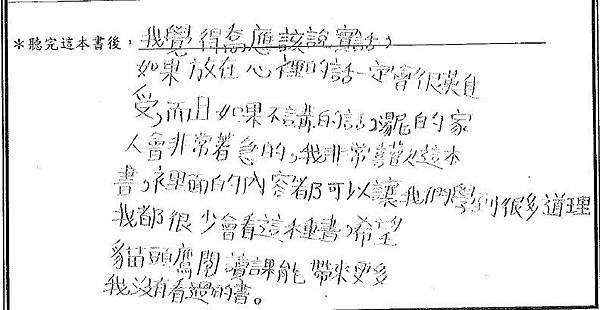 *聽完這本書後,我覺得喬應該說實話,
如果放在心裡的話一定會很難
受,而且如果不講的話,湯尼的家
人會非常著急的,我非常喜歡這本
書,裡面的內容都可以讓我們學到很多道理
我都很少會看這種書,希望
貓頭鷹閱讀課能帶來更多
我沒有看過的書。